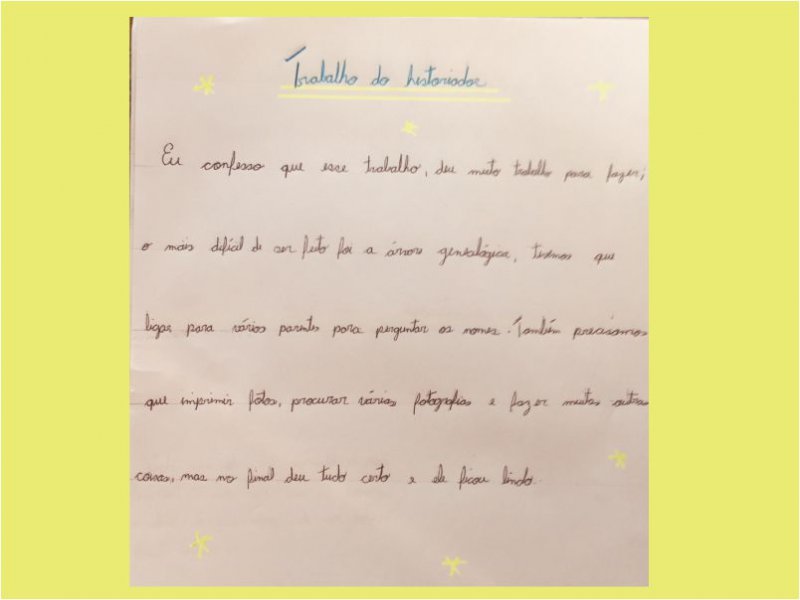 Trabalho do historiador
Eu confesso que esse trabalho, deu muito trabalho para fazer,
o mais difícil de ser feito foi a árvore genealógica, tivemos que
ligar para vários parentes para perguntar os nomes. Também precisamos
que imprimir fotos, procurar várias fotografias e fazer muitas outras
coisas, mas no final deu tudo certo e ele ficou lindo.